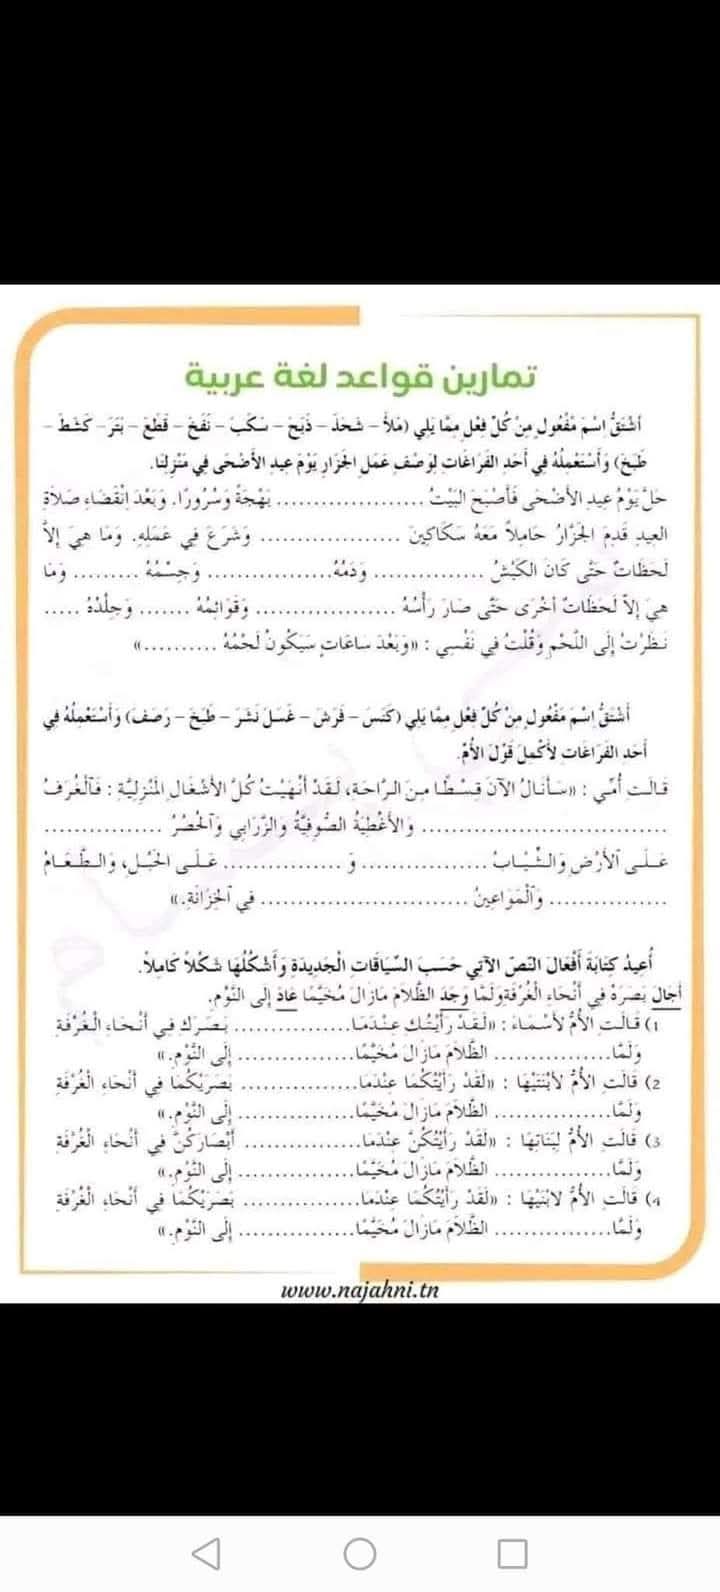 تمارين قواعد لغة عربية
أَشْتَقُّ اسْمَ مَفْعُولٍ مِنْ كُلِّ فِعْلٍ مِمَّا يَلِي (مَلَأَ – شَحَذَ – ذَبَحَ – سَكَبَ – نَفَخَ – قَطَعَ – بَتَرَ – كَشَطَ –
طَبَخَ) وَأَسْتَعْمِلُهُ فِي أَحَدِ الفَرَاغَاتِ لِوَصْفِ عَمَلِ الجَزَّارِ يَوْمَ عِيدِ الأَضْحَى فِي مَنْزِلِنَا.
حَلَّ يَوْمُ عِيدِ الأَضْحَى فَأَصْبَحَ البَيْتُ ..................... بَهْجَةً وَسُرُورًا. وَبَعْدَ انْقِضَاءِ صَلَاةِ
العِيدِ قَدِمَ الجَزَّارُ حَامِلاً مَعَهُ سَكَاكِينَ .................... وَشَرَعَ فِي عَمَلِهِ. وَمَا هِيَ إِلاَّ
لَحَظَاتٌ حَتَّى كَانَ الكَبْشُ ................ وَدَمُهُ.................. وَجِسْمُهُ ......... وَمَا
هِيَ إِلاَّ لَحَظَاتٌ أُخْرَى حَتَّى صَارَ رَأْسُهُ .................... وَقَوَائِمُهُ ....... وَجِلْدُهُ .....
نَظَرْتُ إِلَى اللَّحْمِ وَقُلْتُ فِي نَفْسِي : «وَبَعْدَ سَاعَاتٍ سَيَكُونُ لَحْمُهُ ..........»
أَشْتَقُّ اسْمَ مَفْعُولٍ مِنْ كُلِّ فِعْلٍ مِمَّا يَلِي (كَنَسَ – فَرَشَ – غَسَلَ نَشَرَ – طَبَخَ – رَصَفَ) وَأَسْتَعْمِلُهُ فِي
أَحَدِ الفَرَاغَاتِ لِأُكْمِلَ قَوْلَ الأُمِّ.
قَالَتْ أُمِّي : «سَأَنَالُ الآنَ قِسْطًا مِنَ الرَّاحَةِ، لَقَدْ أَنْهَيْتُ كُلَّ الأَشْغَالِ المَنْزِلِيَّةِ : فَالْغُرَفُ
................................... وَالأَغْطِيَةُ الصُّوفِيَّةُ وَالزَّرَابِي وَالْحُصُرُ .................
عَلَى الأَرْضِ وَالثِّيَابُ.................. وَ ................ عَلَى الحَبْلِ، وَالطَّعَامُ
................. وَالْمَوَاعِينُ .............................. فِي الْخِزَانَةِ.»
أُعِيدُ كِتَابَةَ أَفْعَالِ النَّصِّ الآتِي حَسَبَ السِّيَاقَاتِ الْجَدِيدَةِ وَأَشْكُلُهَا شَكْلاً كَامِلاً.
أَجَالَ بَصَرَهُ فِي أَنْحَاءِ الْغُرْفَةِ وَلَمَّا وَجَدَ الظَّلَامَ مَازَالَ مُخَيِّمًا عَادَ إِلَى النَّوْمِ.
1) قَالَتِ الأُمُّ لِأَسْمَاءَ : «لَقَدْ رَأَيْتُكِ عِنْدَمَا................. بَصَرَكِ فِي أَنْحَاءِ الْغُرْفَةِ
وَلَمَّا................. الظَّلَامَ مَازَالَ مُخَيِّمًا................. إِلَى النَّوْمِ.»
2) قَالَتِ الأُمُّ لِابْنَتَيْهَا : «لَقَدْ رَأَيْتُكُمَا عِنْدَمَا................. بَصَرَيْكُمَا فِي أَنْحَاءِ الْغُرْفَةِ
وَلَمَّا................. الظَّلَامَ مَازَالَ مُخَيِّمًا................. إِلَى النَّوْمِ.»
3) قَالَتِ الأُمُّ لِبَنَاتِهَا : «لَقَدْ رَأَيْتُكُنَّ عِنْدَمَا................. أَبْصَارَكُنَّ فِي أَنْحَاءِ الْغُرْفَةِ
وَلَمَّا................. الظَّلَامَ مَازَالَ مُخَيِّمًا................. إِلَى النَّوْمِ.»
4) قَالَتِ الأُمُّ لِابْنَيْهَا : «لَقَدْ رَأَيْتُكُمَا عِنْدَمَا................. بَصَرَيْكُمَا فِي أَنْحَاءِ الْغُرْفَةِ
وَلَمَّا................. الظَّلَامَ مَازَالَ مُخَيِّمًا................. إِلَى النَّوْمِ.»
www.najahni.tn